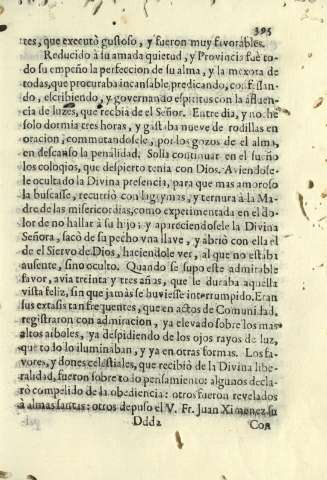 395
tes, que executò gustoso, y fueron muy favorables.
Reducido à su amada quietud, y Provincia fuè to-
do su empeño la perfeccion de su alma, y la mexora de
todas, que procuraba incansable, predicando, confessan-
do, escribiendo, y governando espiritus con la afluen-
cia de luzes, que recibia de el Señor. Entre dia, y noche
solo dormia tres horas, y gastaba nueve de rodillas en
oracion, commutandosele, por los gozos de el alma,
en descanso la penalidad. Solia continuar en el sueño
los coloqios, que despierto tenia con Dios. Aviendose-
le ocultado la Divina presencia, para que mas amoroso
la buscasse, recurriò con lagrymas, y ternura à la Ma-
dre de las misericordias, como experimentada en el do-
lor de no hallar à su hijo; y apareciendosele la Divina
Señora, sacò de su pecho vna llave, y abriò con ella el
de el Siervo de Dios, haciendole ver, al que no estiba
ausente, sino oculto. Quando se supo este admirable
favor, avia treinta y tres años, que le duraba aquella
vista feliz, sin que jamàs se huviesse interrumpido. Eran
sus extasis tan frequentes, que en actos de Comunidad,
registraron con admiracion, ya elevado sobre los mas
altos arboles, ya despidiendo de los ojos rayos de luz,
que todo lo iluminaban, y ya en otras formas. Los fa-
vores, y dones celestiales, que recibiò de la Divina libe-
ralidad, fueron sobre todo pensamiento: algunos decla-
rò compelido de la obediencia: otros fueron revelados
à almas santas: otros depuso el V. Fr. Juan Ximenez su
Ddd2
Con